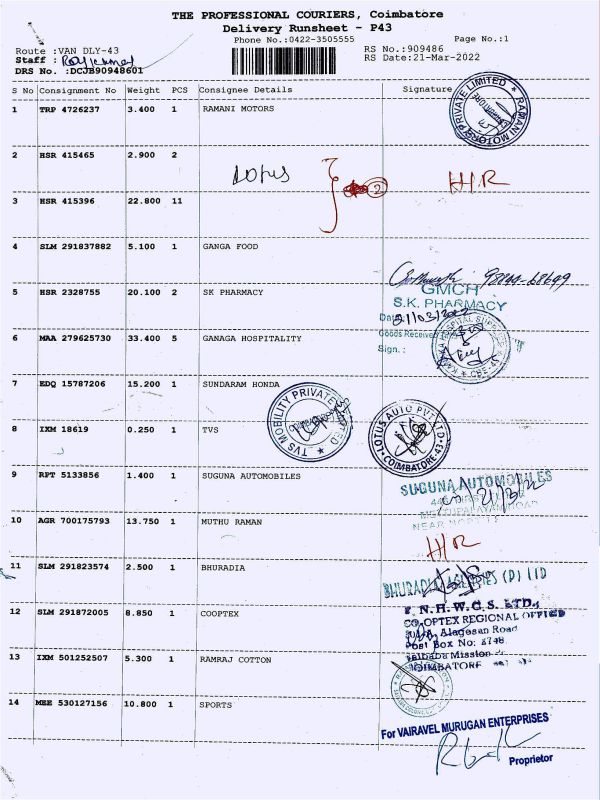 THE PROFESSIONAL COURIERS, Coimbatore
Delivery Runsheet - P43
Phone No.:0422-3505555 Page No.:1
Route :VAN DLY-43 RS No.:909486
Staff : Rajkumar RS Date:21-Mar-2022
DRS No. :DCJB90948601
S No Consignment No Weight PCS Consignee Details Signature
1 TRP 4726237 3.400 1 RAMANI MOTORS
RAMANI MOTORS PRIVATE LIMITED
2 HSR 415465 2.900 2
Lotus 2 H/R
3 HSR 415396 22.800 11
4 SLM 291837882 5.100 1 GANGA FOOD
98844-68649
5 HSR 2328755 20.100 2 SK PHARMACY
GMCH
S.K. PHARMACY
Date 21/03/2022
Goods Received
Sign.:
6 MAA 279625730 33.400 5 GANAGA HOSPITALITY
7 EDQ 15787206 15.200 1 SUNDARAM HONDA
TVS MOBILITY PRIVATE LIMITED
LOTUS AUTO PVT LTD
COIMBATORE-43
8 IXM 18619 0.250 1 TVS
9 RPT 5133856 1.400 1 SUGUNA AUTOMOBILES
SUGUNA AUTOMOBILES
21/3/22
10 AGR 700175793 13.750 1 MUTHU RAMAN
H/R
11 SLM 291823574 2.500 1 BHURADIA
BHURADIA AGENCIES (P) LTD
12 SLM 291872005 8.850 1 COOPTEX
T.N.H.W.C.S. LTD.,
CO-OPTEX REGIONAL OFFICE
Alagesan Road
Post Box No:
Saibaba Mission
COIMBATORE
13 IXM 501252507 5.300 1 RAMRAJ COTTON
14 MEE 530127156 10.800 1 SPORTS
For VAIRAVEL MURUGAN ENTERPRISES
Proprietor